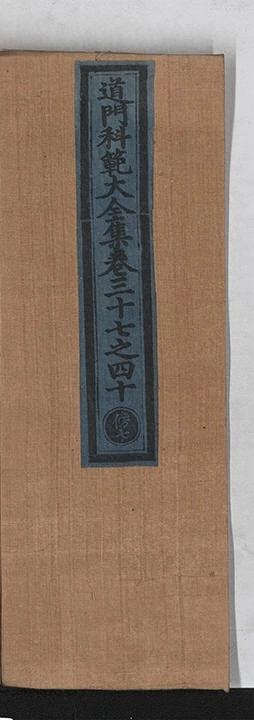 道門科範大全集卷三十七之四十
傍七